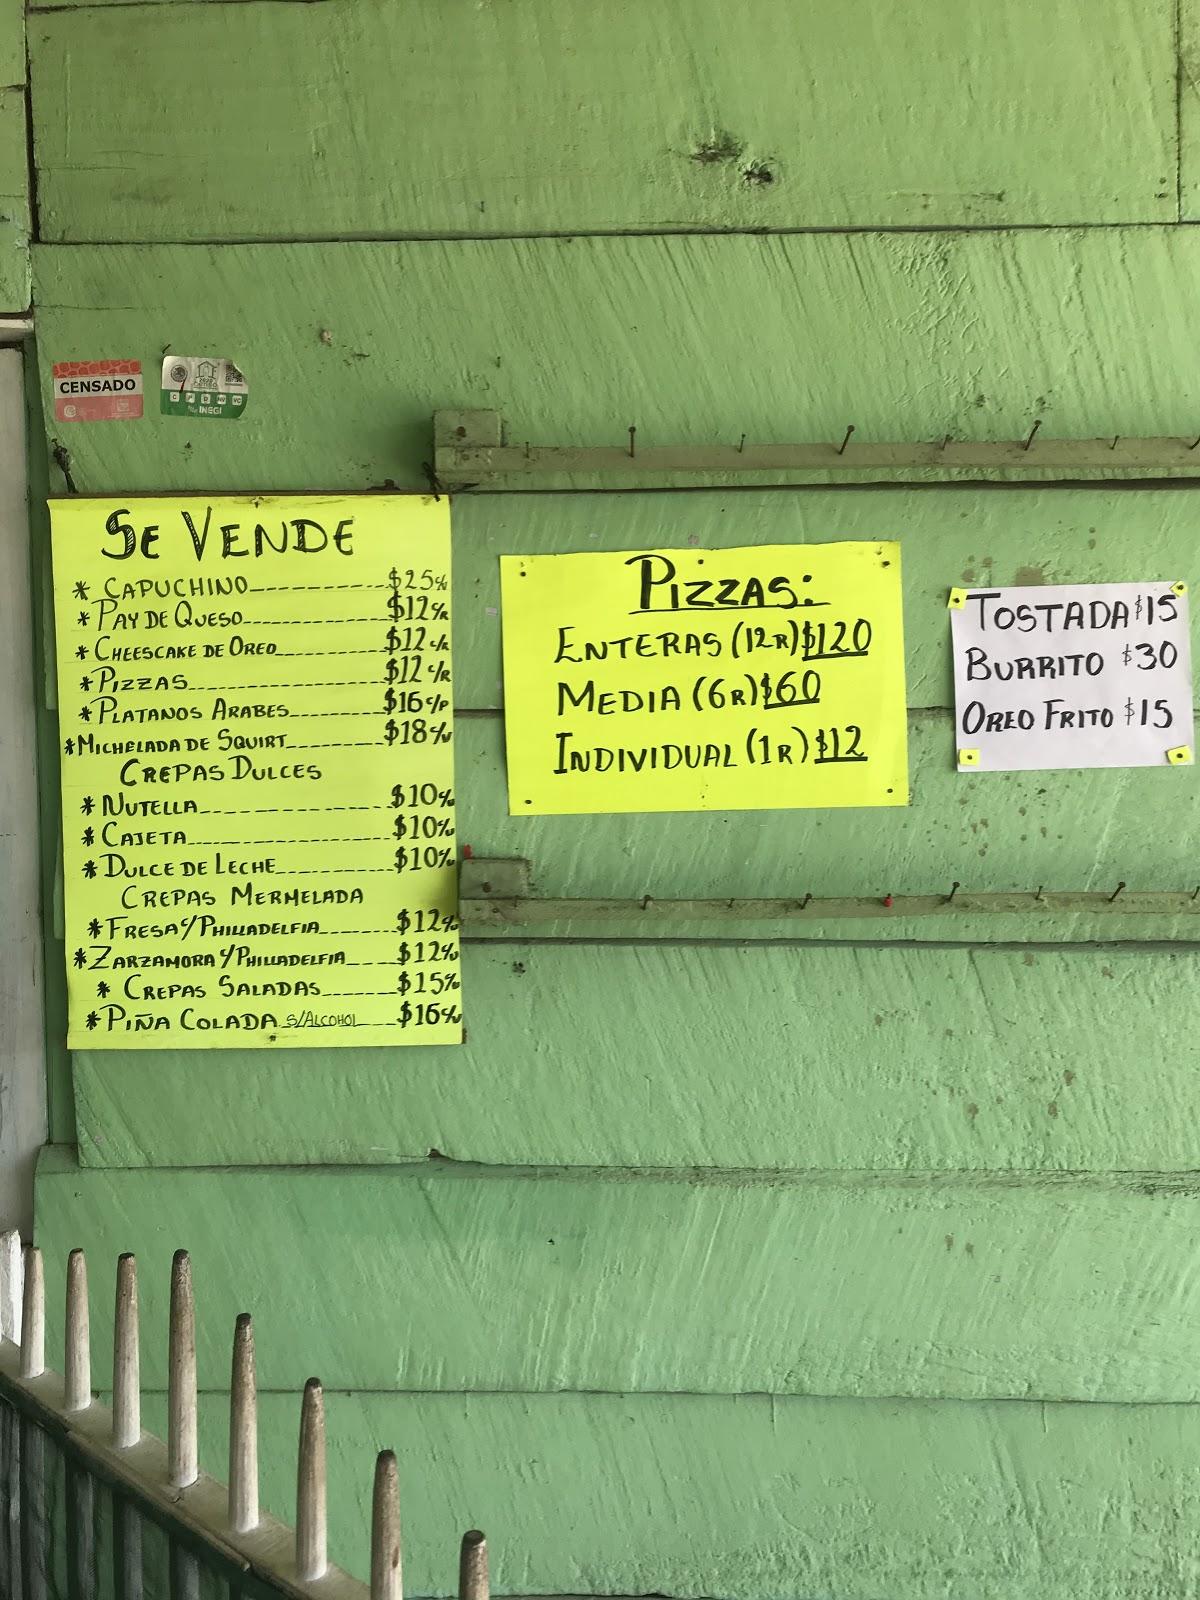 CENSADO
2020
C P D NV VC
INEGI
SE VENDE
* CAPUCHINO $25 c/u
* PAY DE QUESO $12 c/R
* CHEESCAKE DE OREO $12 c/R
* PIZZAS $12 c/R
* PLATANOS ARABES $16 c/P
* MICHELADA DE SQUIRT $18 c/u
CREPAS DULCES
* NUTELLA $10 c/u
* CAJETA $10 c/u
* DULCE DE LECHE $10 c/u
CREPAS MERMELADA
* FRESA C/PHILLADELFIA $12 c/u
* ZARZAMORA C/PHILLADELFIA $12 c/u
* CREPAS SALADAS $15 c/u
* PIÑA COLADA S/ALCOHOL $16 c/u
PIZZAS:
ENTERAS (12R) $120
MEDIA (6R) $60
INDIVIDUAL (1R) $12
TOSTADA $15
BURRITO $30
OREO FRITO $15